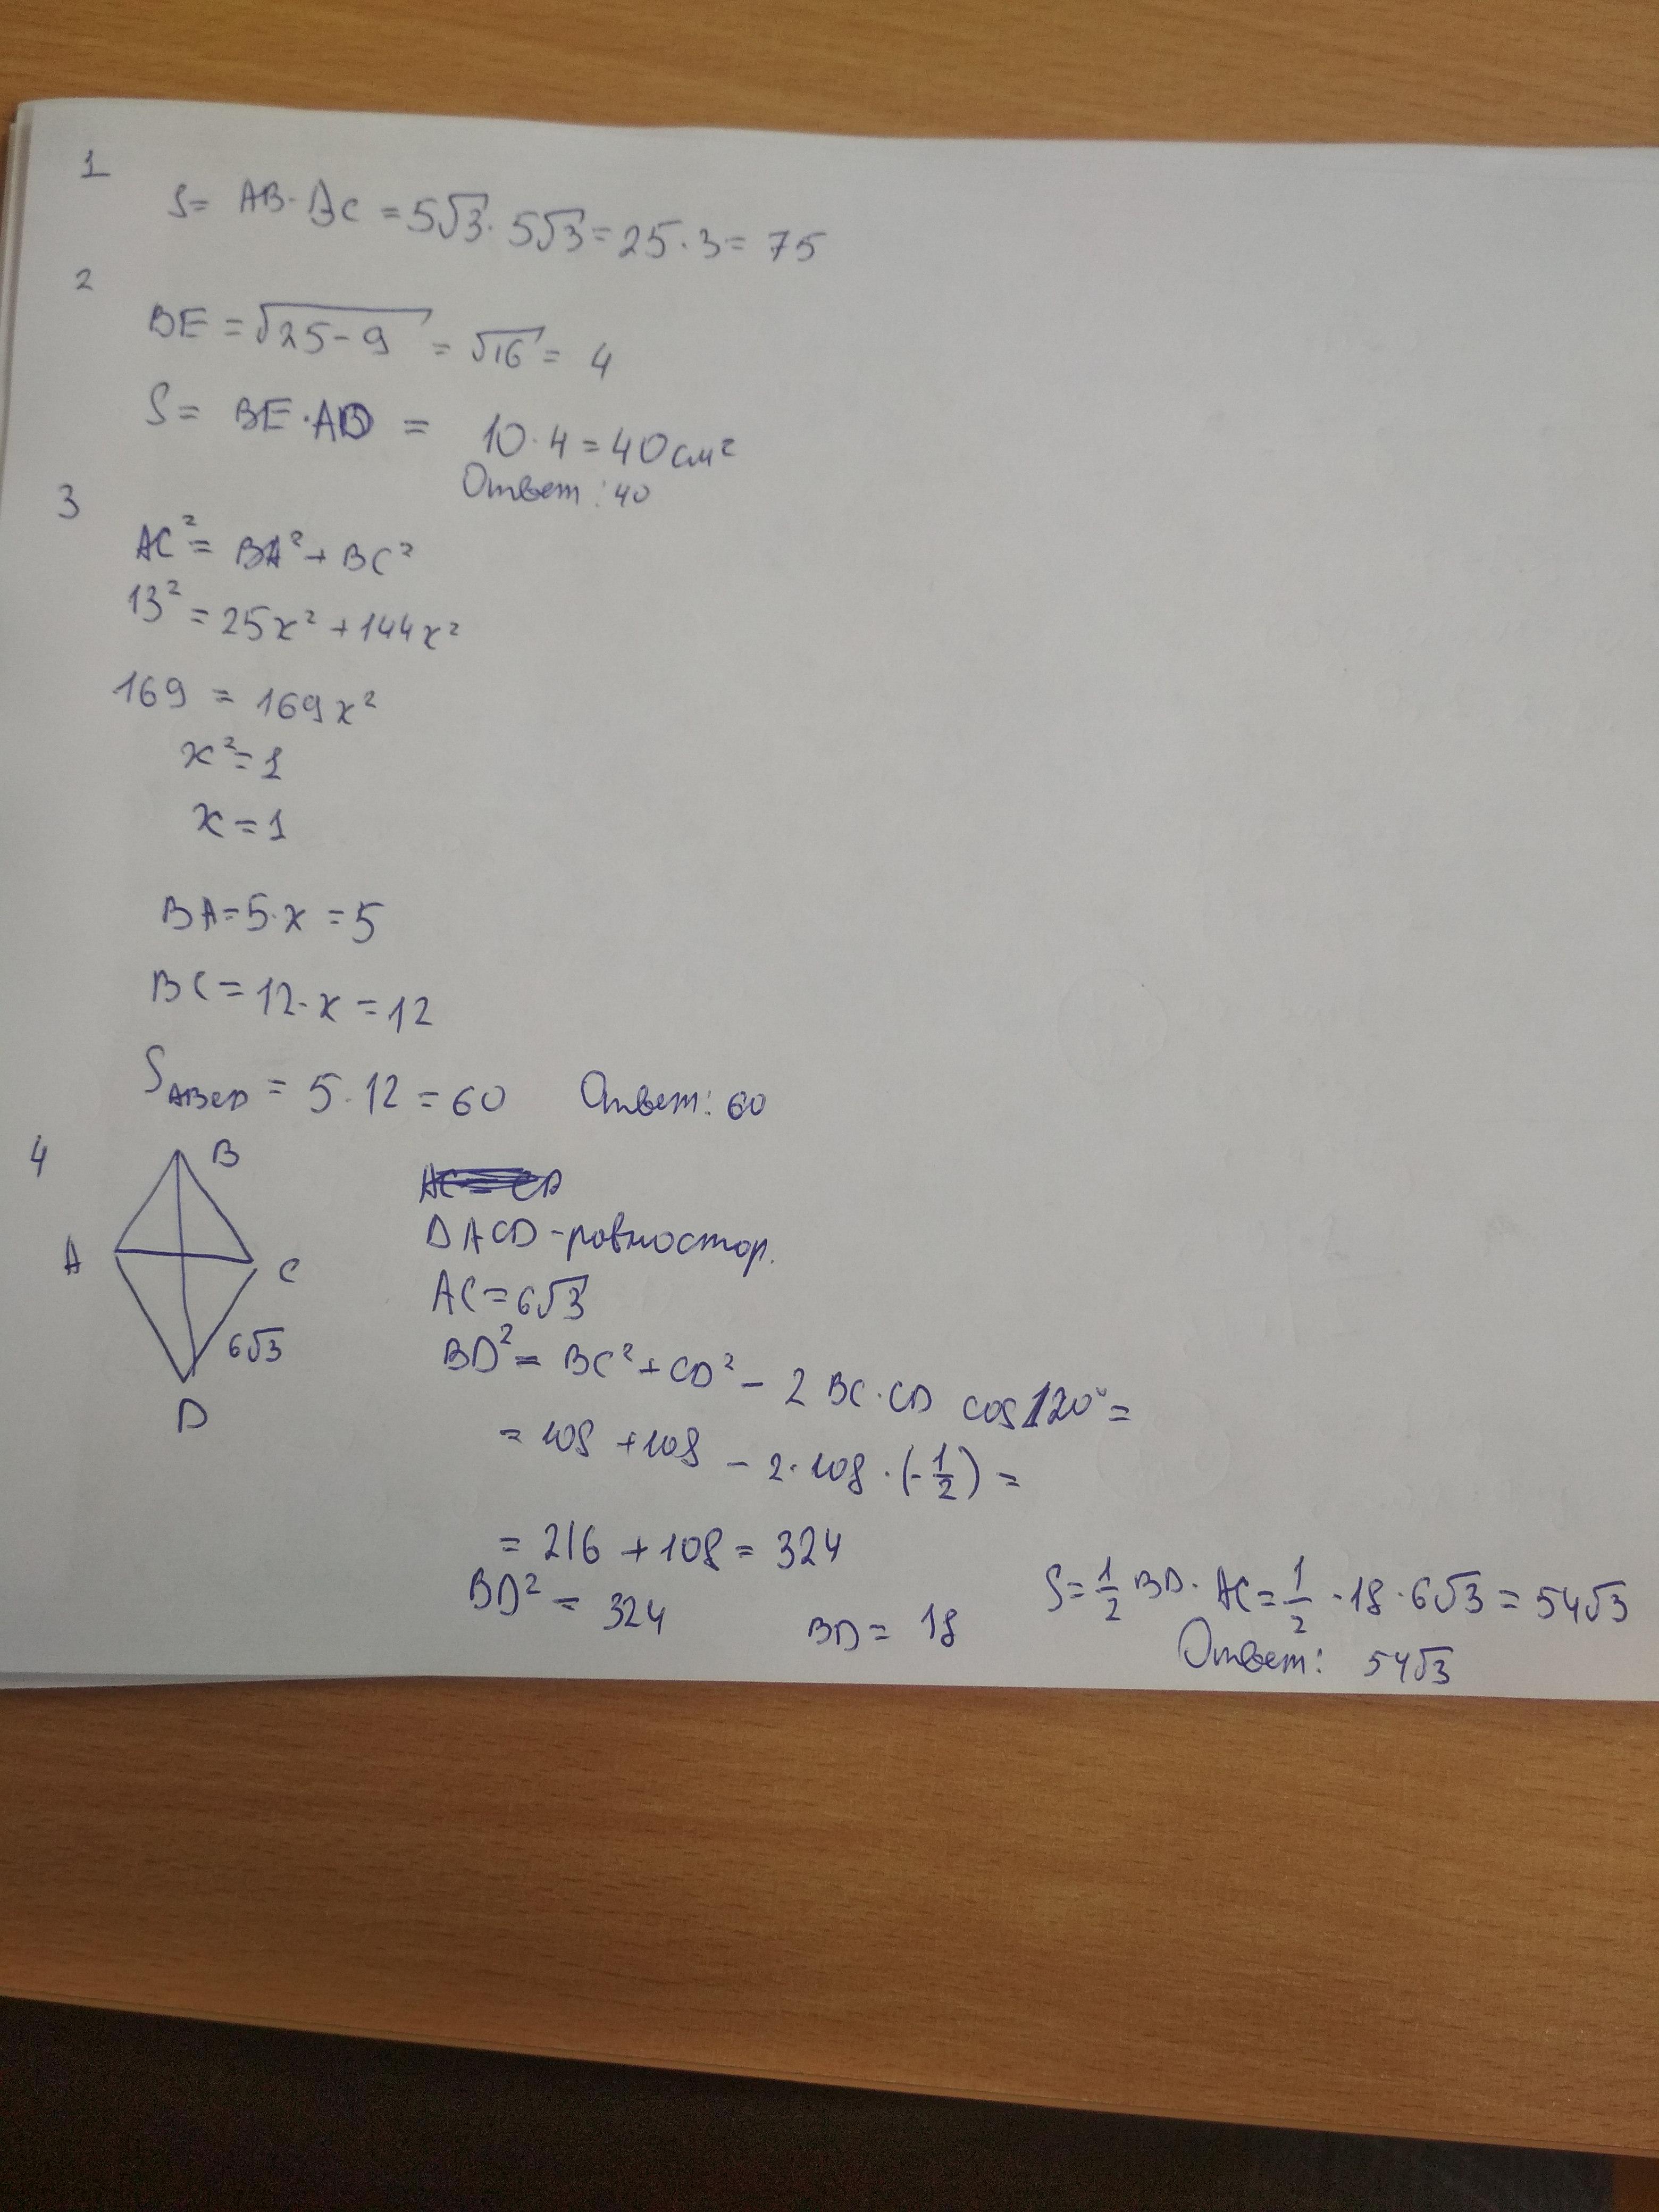 1
S= AB·BC =5√3·5√3=25·3=75
2
BE=√25-9=√16=4
S= BE·AD = 10·4=40см²
Ответ: 40
3
AC²=BA²+BC²
13²=25x²+144x²
169=169x²
x²=1
x=1
BA=5·x=5
BC=12·x=12
S ABCD = 5·12=60 Ответ: 60
4
B
A
C
6√3
D
ΔACD-равностор.
AC=6√3
BD²=BC²+CD²-2BC·CD cos120°=
=108+108-2·108·(-1/2)=
=216+108=324
BD²=324
BD=18
S=1/2 BD·AC=1/2·18·6√3=54√3
Ответ: 54√3